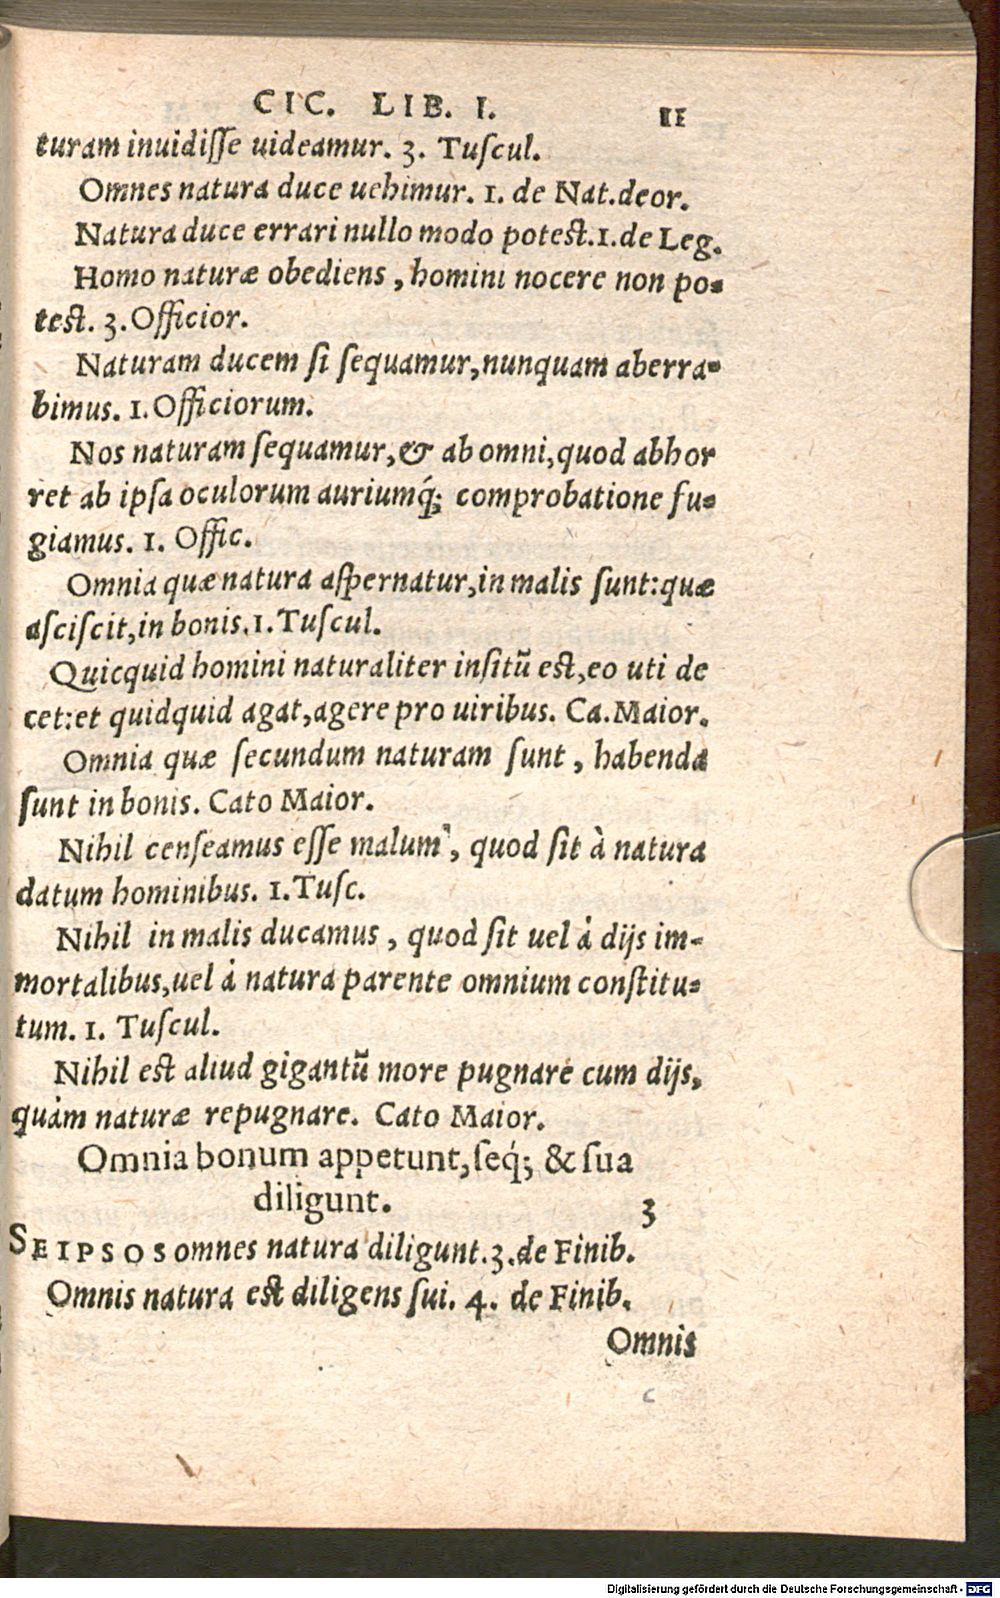 CIC. LIB. I. 11
turam inuidiſſe uideamur. 3. Tuſcul.
Omnes natura duce uehimur. 1. de Nat.deor.
Natura duce errari nullo modo poteſt.1.de Leg.
Homo naturæ obediens, homini nocere non po-
teſt. 3. Officior.
Naturam ducem ſi ſequamur, nunquam aberra-
bimus. 1. Officiorum.
Nos naturam ſequamur, & ab omni, quod abhor
ret ab ipſa oculorum auriumq́; comprobatione fu-
giamus. 1. Offic.
Omnia quæ natura aſpernatur, in malis ſunt: quæ
aſciſcit, in bonis. 1. Tuſcul.
Quicquid homini naturaliter inſitũ eſt, eo uti de
cet: et quidquid agat, agere pro uiribus. Ca. Maior.
Omnia quæ ſecundum naturam ſunt, habenda
ſunt in bonis. Cato Maior.
Nihil cenſeamus eſſe malum, quod ſit à natura
datum hominibus. 1. Tuſc.
Nihil in malis ducamus, quod ſit uel à dijs im-
mortalibus, uel à natura parente omnium conſtitu-
tum. 1. Tuſcul.
Nihil eſt aliud gigantũ more pugnare cum dijs,
quàm naturæ repugnare. Cato Maior.
Omnia bonum appetunt, ſeq́; & ſua
diligunt. 3
SEIPSOS omnes natura diligunt. 3. de Finib.
Omnis natura eſt diligens ſui. 4. de Finib.
Omnis
c
Digitalisierung gefördert durch die Deutsche Forschungsgemeinschaft - DFG